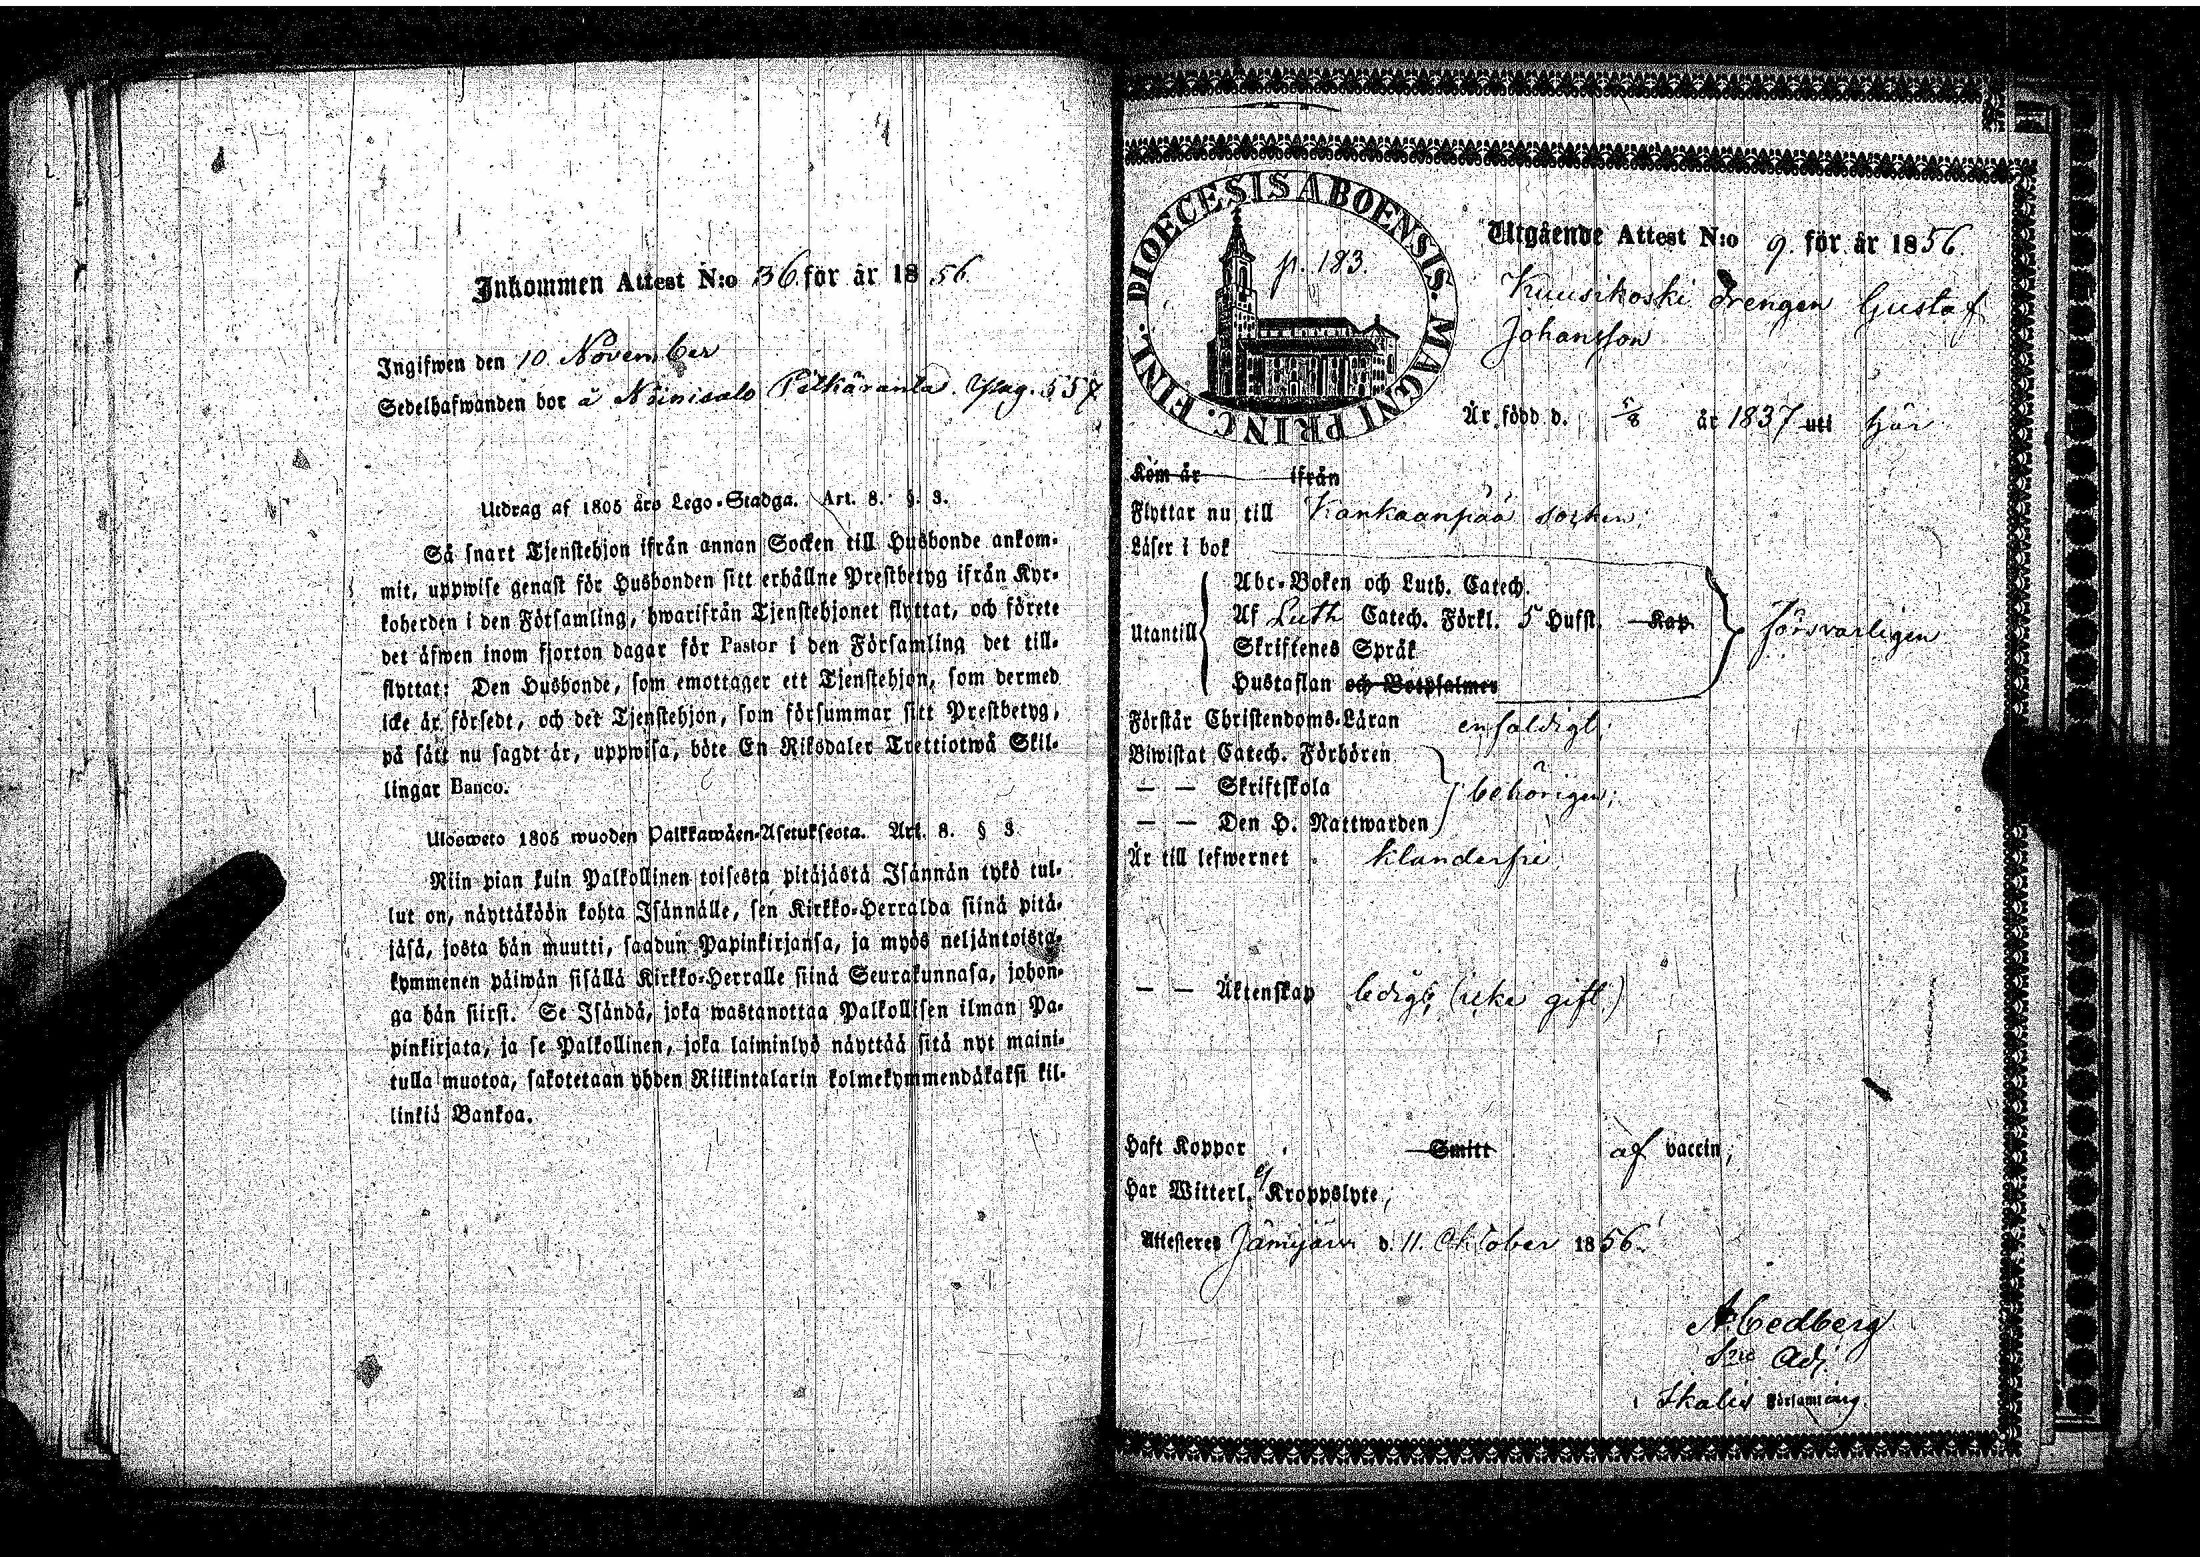 Inkommen Attest N:o 36. för år 1856.
Ingifwen den 10 November
Sedelhafwanden bor å Niinisalo Pitkäranta. pag. 557
Utdrag af 1805 års Lego-Stadga. Art. 8. §. 3.
Så snart Tjenstehjon ifrån annan Socken till Husbonde ankom-
mit, uppwise genast för Husbonden sitt erhållne Prestbetyg ifrån Kyr-
koherden i den Församling, hwarifrån Tjenstehjonet flyttat, och förete
det äfwen inom fjorton dagar för Pastor i den Församling det till-
flyttat: Den Husbonde, som emottager ett Tjenstehjon, som dermed
icke är försedt, och det Tjenstehjon, som försummar sitt Prestbetyg,
på sätt nu sagdt är, uppwisa, böte En Riksdaler Trettiotwå Skil-
lingar Banco.
Ulosweto 1805 wuoden Palkkawäen-Asetuksesta. Art. 8. § 3
Niin pian kuin Palkollinen toisesta pitäjästä Isännän tykö tul-
lut on, näyttäköön kohta Isännälle, sen Kirkko-Herralda siinä pitä-
jäsä, josta hän muutti, saadun Papinkirjansa, ja myös neljäntoista-
kymmenen päiwän sisällä Kirkko-Herralle siinä Seurakunnasa, johon-
ga hän siirsi. Se Isändä, joka wastanottaa Palkollisen ilman Pa-
pinkirjata, ja se Palkollinen, joka laiminlyö näyttää sitä nyt maini-
tulla muotoa, sakotetaan yhden Riikintalarin kolmekymmendäkaksi kil-
linkiä Bankoa.
DIOECESIS ABOENSIS. MAGNI PRINC. FINL.
p. 183.
Utgående Attest N:o 9. för år 1856.
Kuusikoski drengen Gustaf
Johansson
Är född d. 5/8 år 1837 uti här
Kom år ifrån
Flyttar nu till Kankaanpää socken;
Läser i bok
Utantill
Abc-Boken och Luth. Catech.
Af Luth Catech. Förkl. 5 Hufst. Kap.
Skriftenes Språk
Hustaflan och Botpsalmer
försvarligen
Förstår Christendoms-Läran enfaldigt;
Biwistat Catech. Förhören
— — Skriftskola
— — Den H. Nattwarden
behörigen;
Är till lefwernet klanderfri
— — Äktenskap ledig; (icke gift.)
Haft Koppor Smitt af vaccin;
Har Witterl. ej Kroppslyte;
Attesteres Jämijärvi d. 11. Oktober 1856.
A. Cedberg
Adj
i Ikalis Församling.